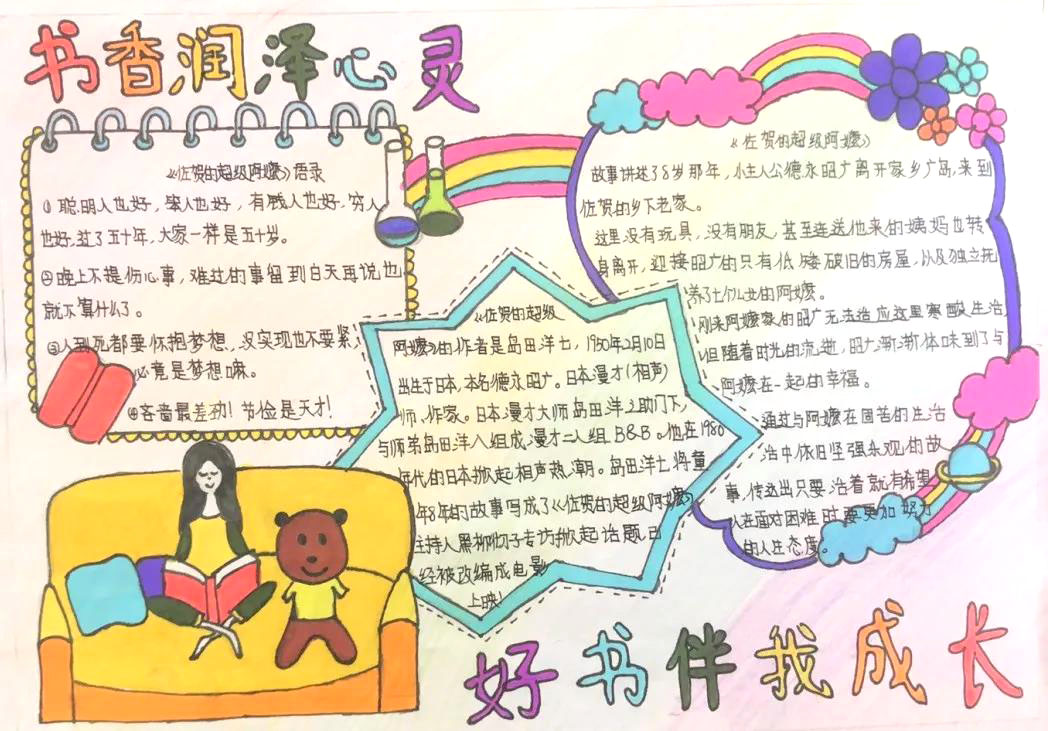 书香润泽心灵
《佐贺的超级阿嬷》语录
①聪明人也好，笨人也好，有钱人也好，穷人
也好，过了五十年，大家一样是五十岁。
②晚上不提伤心事，难过的事留到白天再说也
就不算什么了。
③人到死都要怀抱梦想，没实现也不要紧，
必竟是梦想嘛。
④吝啬最差劲！节俭是天才！
《佐贺的超级
阿嬷》的作者是岛田洋七，1950年2月10日
出生于日本，本名德永昭广。日本漫才（相声）
师、作家。日本漫才大师岛田洋之助门下，
与师弟岛田洋八组成漫才二人组B&B。他在1980
年代的日本掀起相声热潮。岛田洋七将童
年8年的故事写成了《佐贺的超级阿嬷》
主持人黑柳彻子专访掀起话题已
经被改编成电影
上映！
《佐贺的超级阿嬷》
故事讲述了8岁那年，小主人公德永昭广离开家乡广岛，来到
佐贺的乡下老家。
这里没有玩具，没有朋友，甚至连送他来的姨妈也转
身离开，迎接昭广的只有低矮破旧的房屋，以及独立抚
养了七个儿女的阿嬷。
刚来阿嬷家的昭广无法适应这里寒酸生活
但随着时光的流逝，昭广渐渐体味到了与
阿嬷在一起的幸福。
通过与阿嬷在困苦的生活
治中依旧坚强乐观的故
事，传达出只要活着就有希望
人在面对困难时要更加努力
的人生态度。
好书伴我成长